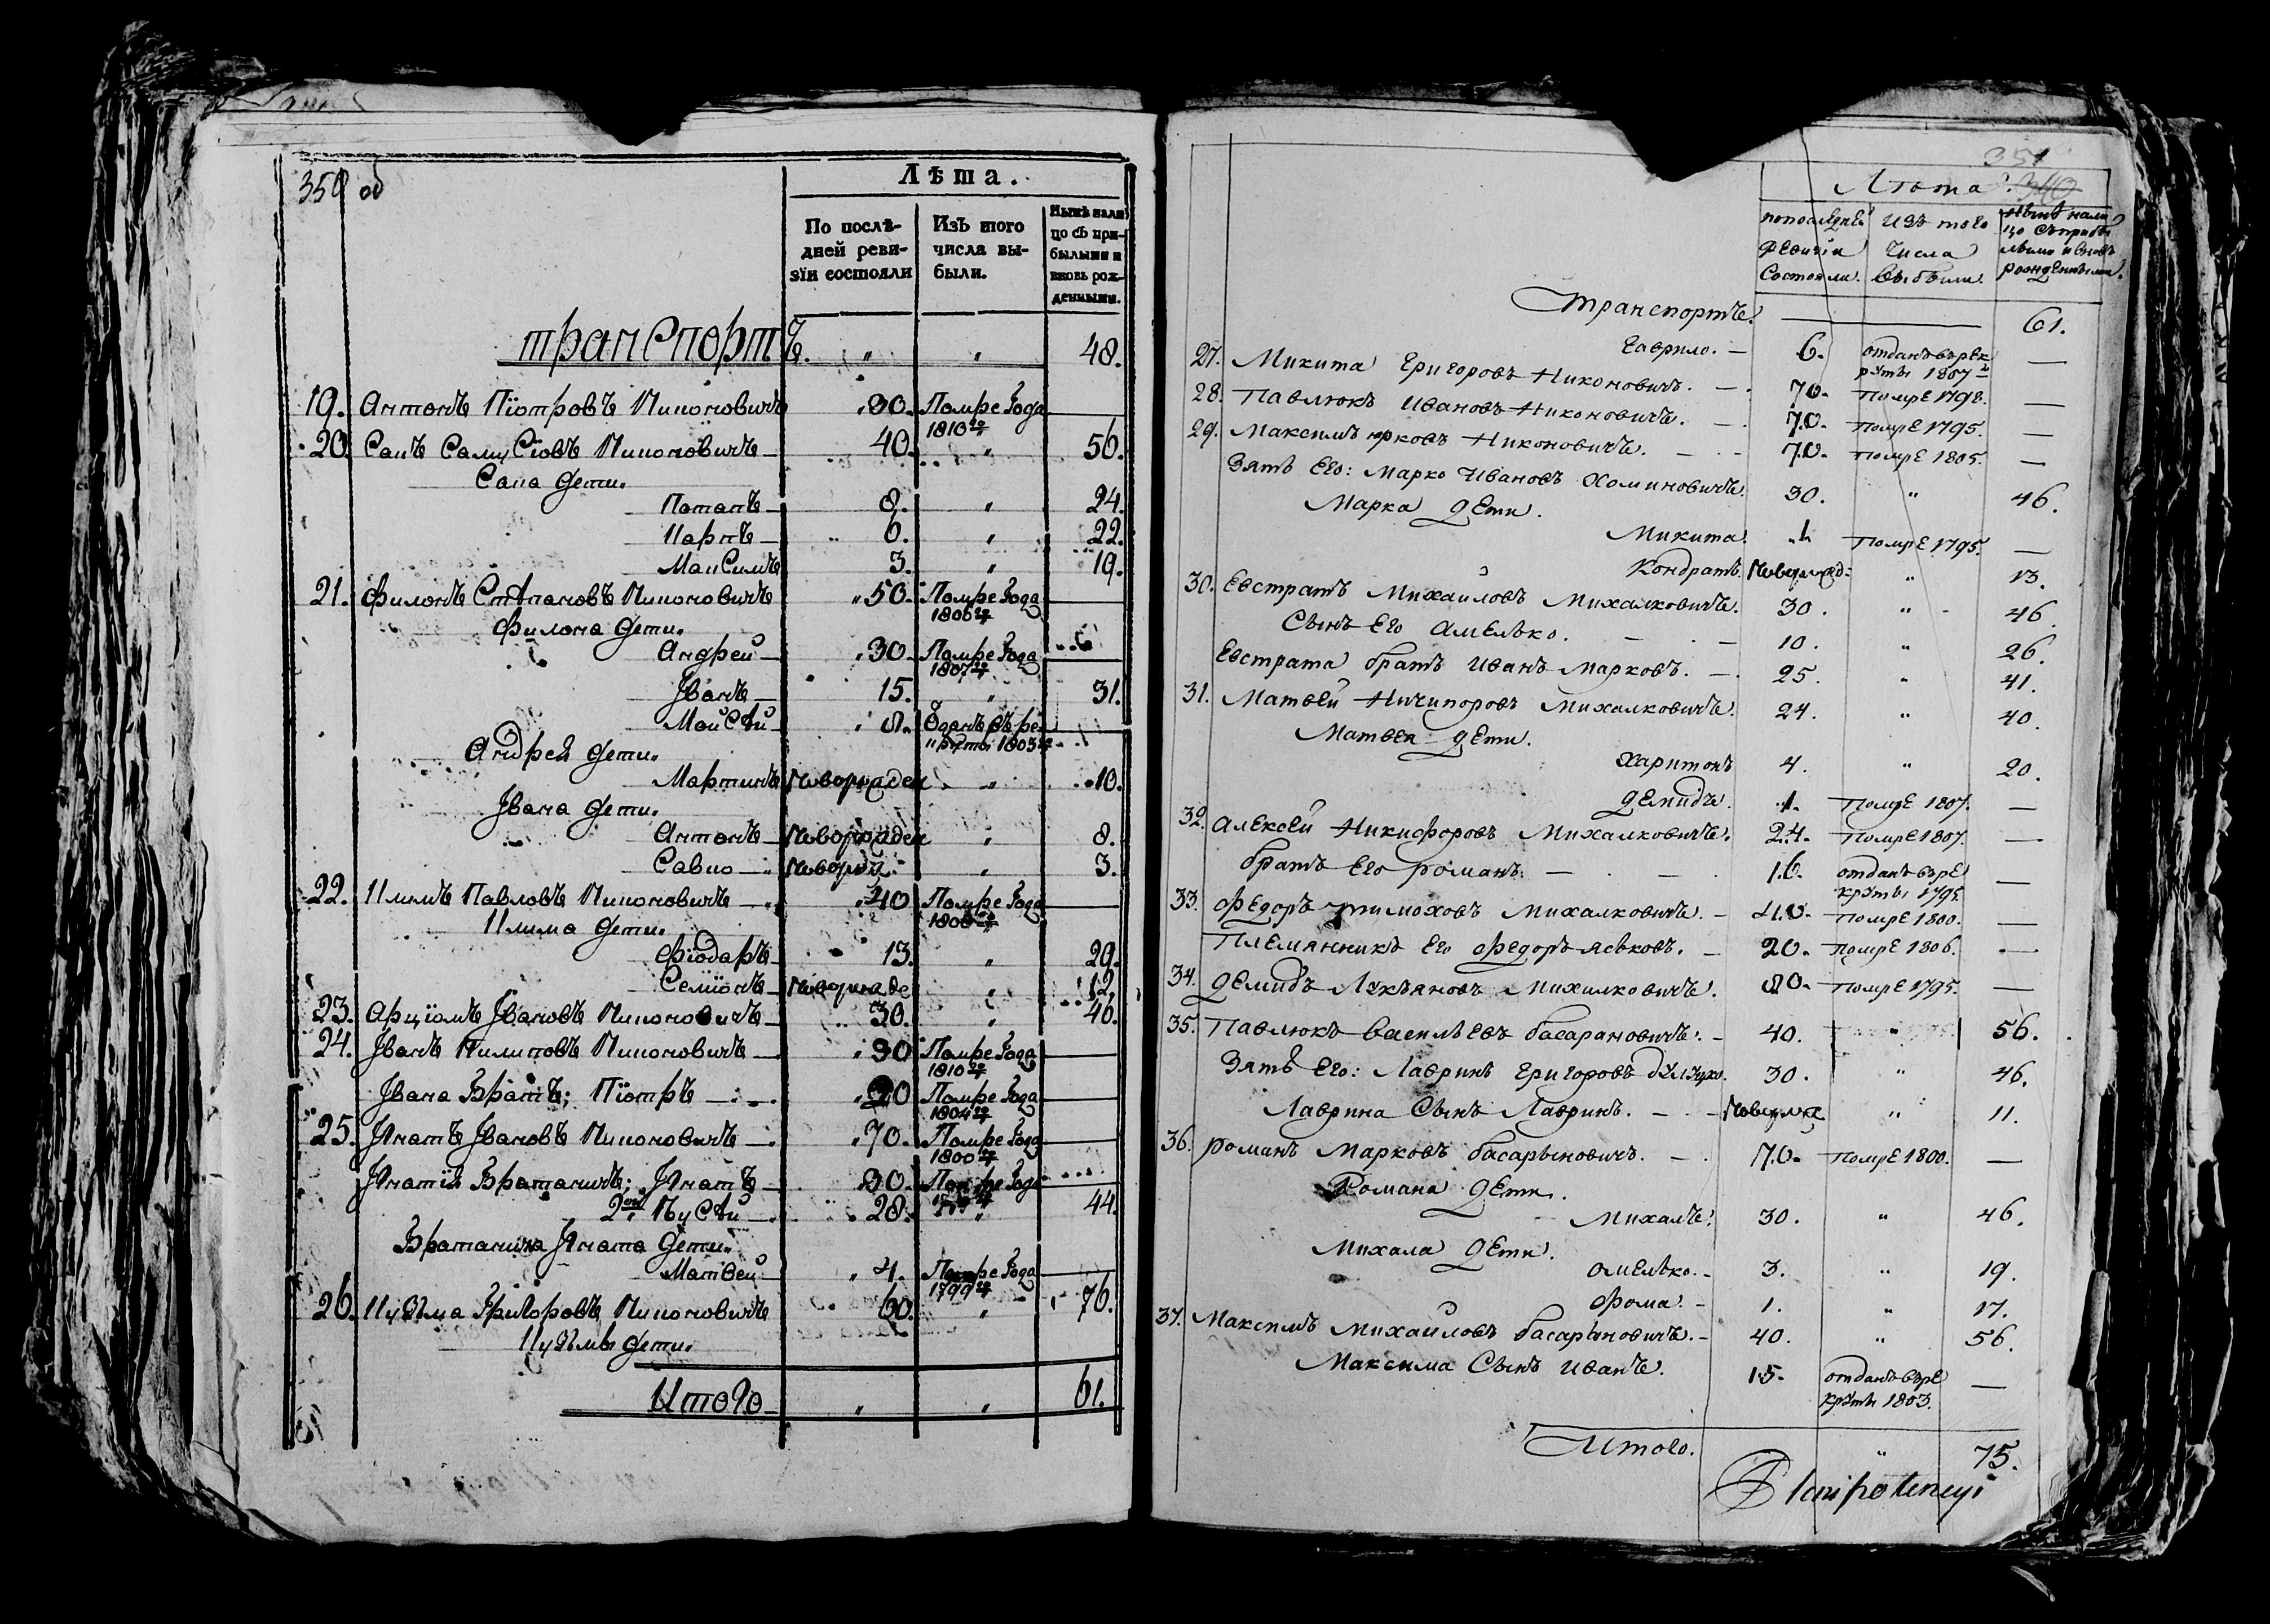 350 об
Лѣта.
По послѣ-
дней реви-
зїи состояли
Изъ того
числа вы-
были.
Нынѣ нали
цо съ при-
былыми и
вновь рож-
денными.
транспортъ. " " 48.
19. Антонъ Піотровъ Никоновичъ 30. Помре Года
1810го
20. Сакъ Самусіовъ Никоновичъ 40. " 56.
Сака дети.
Потапъ 8. " 24.
Карпъ 6. " 22.
Максимъ 3. " 19.
21. Филонъ Стѣпановъ Никоновичъ 50. Помре Года
1806го
Филона дети.
Андрей 30. Помре Года
1807го
Іванъ 15. " 31.
Мойсѣй 8. Оданъ въ ре
круты 1803го
Андрея дети.
Мартинъ Новорожден " 10.
Івана дети.
Антонъ Новорожден " 8.
Савко Новорож: " 3.
22. Климъ Павловъ Никоновичъ 40 Помре Года
1808го
Клима дети.
Фіодаръ 13. " 29.
Семіонъ Новорожде " 12.
23. Арціомъ Івановъ Никоновичъ 30. " 46.
24. Іванъ Пилиповъ Никоновичъ 30 Помре Года
1810го
Івана Братъ; Піотръ 20 Помре Года
1804го
25. Ігнатъ Івановъ Никоновичъ 70. Помре Года
1800го
Ігнатія Братаничъ; Ігнатъ 30. Помре Года
2ой 28. " 44.
Братанича Ігната дети.
Матвей 4. Помре Года
1799го
26. Кузьма Григоровъ Никоновичъ 60. " 76.
Кузьмы дети.
Итого " " 61.
351
340
Лѣта.
попоследней
Ревизіи
Состояли.
Изъ того
Числа
Выбыли.
Нынѣ нали
цо съ прибы
лыми и вновь
рожденными.
Транспортъ. 61.
Гаврило. 6. отданъ въ рек
руты 1807го
27. Микита Григоровъ Никоновичъ. 70. Помре 1798.
28. Павлюкъ Ивановъ Никоновичъ. 70. Помре 1795.
29. Максимъ Юрковъ Никоновичъ. 70. Помре 1805.
Зять Его: Марко Ивановъ Хоминовичъ. 30. " 46.
Марка дети.
Микита. 1 Помре 1795.
Кондратъ. Новорожд: " 13.
30. Евстратъ Михайловъ Михалковичъ. 30. " 46.
Сынъ Его Амелько. 10. " 26.
Евстрата братъ Иванъ Марковъ. 25. " 41.
31. Матвей Ничипоровъ Михалковичъ. 24. " 40.
Матвея дети.
Харитонъ 4. " 20.
Демидъ. 1. Помре 1807.
32. Алексей Никифоровъ Михалковичъ. 24. Помре 1807.
братъ Его Романъ. 16. отданъ въ ре
круты 1795.
33. Федоръ Тимоховъ Михалковичъ. 40. Помре 1800.
Племянникъ Его Федоръ Яськовъ. 20. Помре 1806.
34. Демидъ Лукьяновъ Михалковичъ. 80. Помре 1795.
35. Павлюкъ Васильевъ басарановичъ. 40. " 56.
Зять Его: Лавринъ Григоровъ 30. " 46.
Лаврина Сынъ Лавринъ. Новорож " 11.
36. Романъ Марковъ басарыновичъ. 70. Помре 1800.
Романа дети.
Михалъ. 30. " 46.
Михала дети.
Омелько. 3. " 19.
Фома. 1. " 17.
37. Максимъ Михайловъ басарыновичъ. 40. " 56.
Максима Сынъ Иванъ. 15. отданъ въ ре
круты 1803.
Итого. " 75.
Plenipotencyi